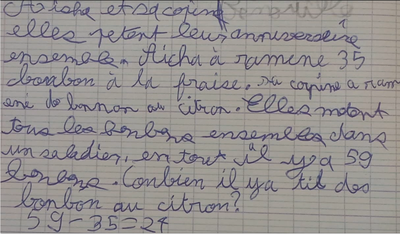 Aicha et sa copine
elles fetent leur anniversaire
ensembles. Aicha à ramene 35
bonbon à la fraise. sa copine a ram
ené do bonnon au citron. Elles metent
tous les bonbons ensembles dans
un saladier, en tout il ya 59
bonbons. Conbien il ya til des
bonbon au citron?
59-35=24